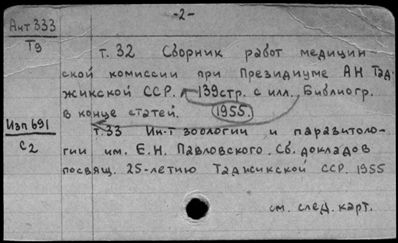 -2-
Ант 333
Т9
т. 32 Сборник работ медицин
ской комиссии при Президиуме АН Тад-
жикской ССР. 139стр. с илл., Библиогр.
в конце статей. 1955.
Изп 691
С2
т. 33 Ин-т зоологии и паразитоло-
гии им. Е.Н. Павловского. Сб. докладов
посвящ. 25-летию Таджикской ССР. 1955
см. след. карт.